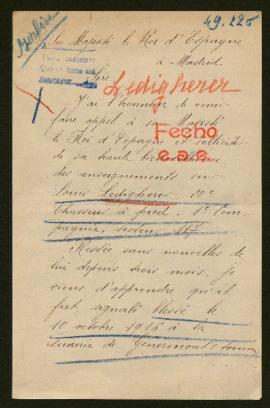 49.225
Berlin
Sa Majesté le Roi d'Espagne
à Madrid.
Sire
Ledigherer
J'ai l'honneur de venir
faire appel à sa Majesté
le Roi d'Espagne et solliciter
de sa haute
Fecho
des renseignements sur
Louis Ledigherer, 20e
Chasseurs à pied. 1e Com-
pagnie, secteur 117
Restée sans nouvelles de
lui depuis trois mois. Je
viens d'apprendre qu'il
fut signalé blessé le
10 octobre 1916 à la
sucrerie de Genermont (Somme